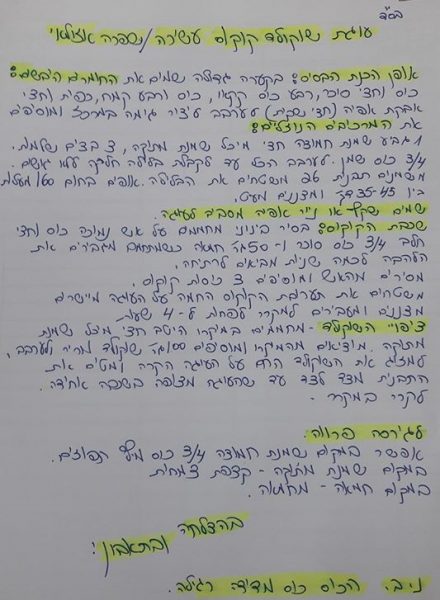 בס"ד
עוגת שוקולד קוקוס עשירה/שפרה אזולאי
אופן הכנת הבסיס: בקערה גדולה שמים את החומרים היבשים:
כוס וחצי סוכר, רבע כוס קקאו, כוס ורבע קמח, כפית וחצי
אבקת אפיה (חצי שקית) לערבב ליצור גומה במרכז ומוסיפים
את המרכיבים הנוזלים:
1 גביע שמנת חמוצה חצי מיכל שמנת מתוקה, 3 בצים שלמות.
3/4 כוס שמן. לערבב הכל עד לקבלת בלילה חלקה ללא גושים.
משמנים תבנית 26 משטחים את הבלילה. אופים בחום 160 מעלות
בין 35-45 דק' ומצננים מעט.
שמים שקף או נייר אפיה מסביב לעוגה.
שכבת הקוקוס: בסיר בינוני מחממים על אש נמוכה כוס וחצי
חלב 3/4 כוס סוכר ו-50 גר' חמאה כשמתחמם מגבירים את
הלהבה לכמה שניות מביאים לרתיחה.
מסירים מהאש ומוסיפים 3 כוסות קוקוס.
משטחים את תערובת הקוקוס החמה על העוגה מיישרים
מצננים ומעבירים למקרר לפחות ל-4 שעות
ציפוי השוקולד - מחממים במיקרו היטב חצי מיכל שמנת
מתוקה. מוציאים מהמיקרו ומוסיפים 100 גר' שוקולד מריר ולערבב,
למזוג את השוקולד החם על העוגה הקרה ומטים את
התבנית מצד לצד עד שהעוגה מצופה בשכבה אחידה.
לקרר במקרר -
לגירסה פרווה.
אפשר במקום שמנת חמוצה 3/4 כוס מיץ תפוזים.
במקום שמנת מתוקה - קצפת צמחית
במקום חמאה - מחמאה.
בהצלחה
ובתאבון!
נ.ב. הכוס כוס מדידה רגילה.